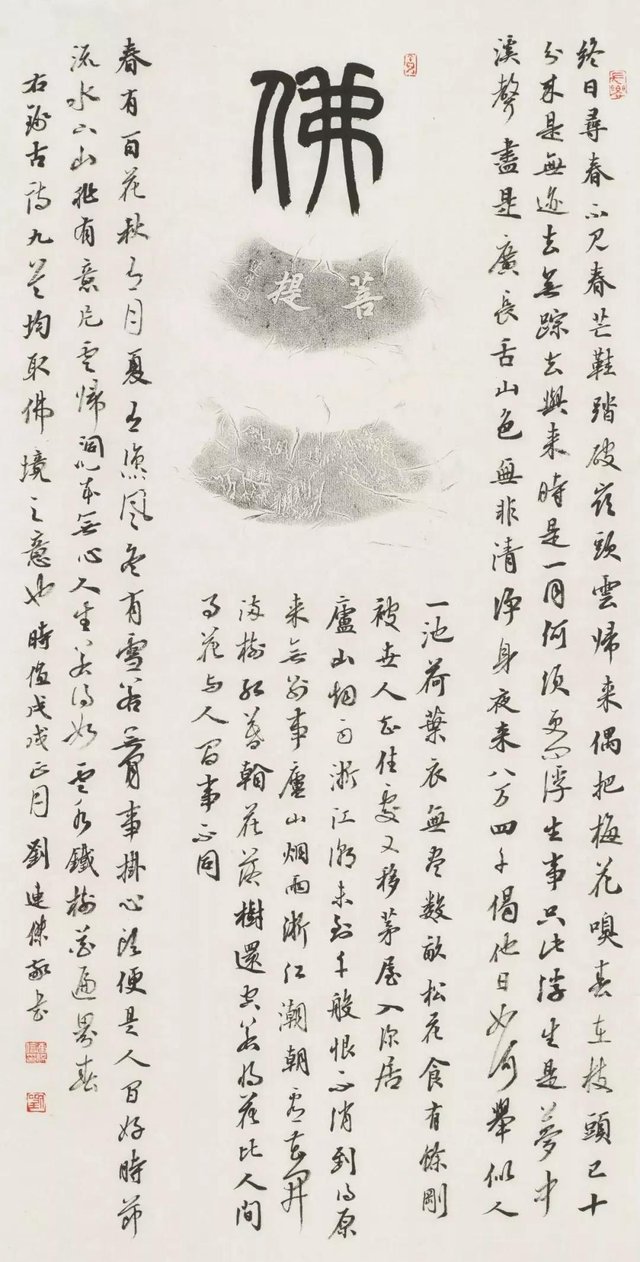 终日尋春不见春芒鞋踏破嶺頭雲歸来偶把梅花嗅春在枝頭已十
分来是無迹去無踪去與来時是一同何須更問浮生事只此浮生是夢中
溪聲盡是廣長舌山色無非清淨身夜来八万四千偈他日如何舉似人
佛
菩提
一池荷葉衣無尽数畝松花食有餘剛
被世人知住處又移茅屋入深居
廬山烟雨浙江潮未到千般恨不消到得原
来無别事廬山烟雨浙江潮朝看花開
满樹红暮花落樹還空若将花比人間
事花与人間事正同
春有百花秋有月夏有凉風冬有雪若無閑事掛心頭便是人間好時節
流水下山非有意片雲歸洞本無心人生若得如雲水鐵樹花遍界春
右録古詩九首均取佛境之意也時值戊戌正月劉連傑敬書